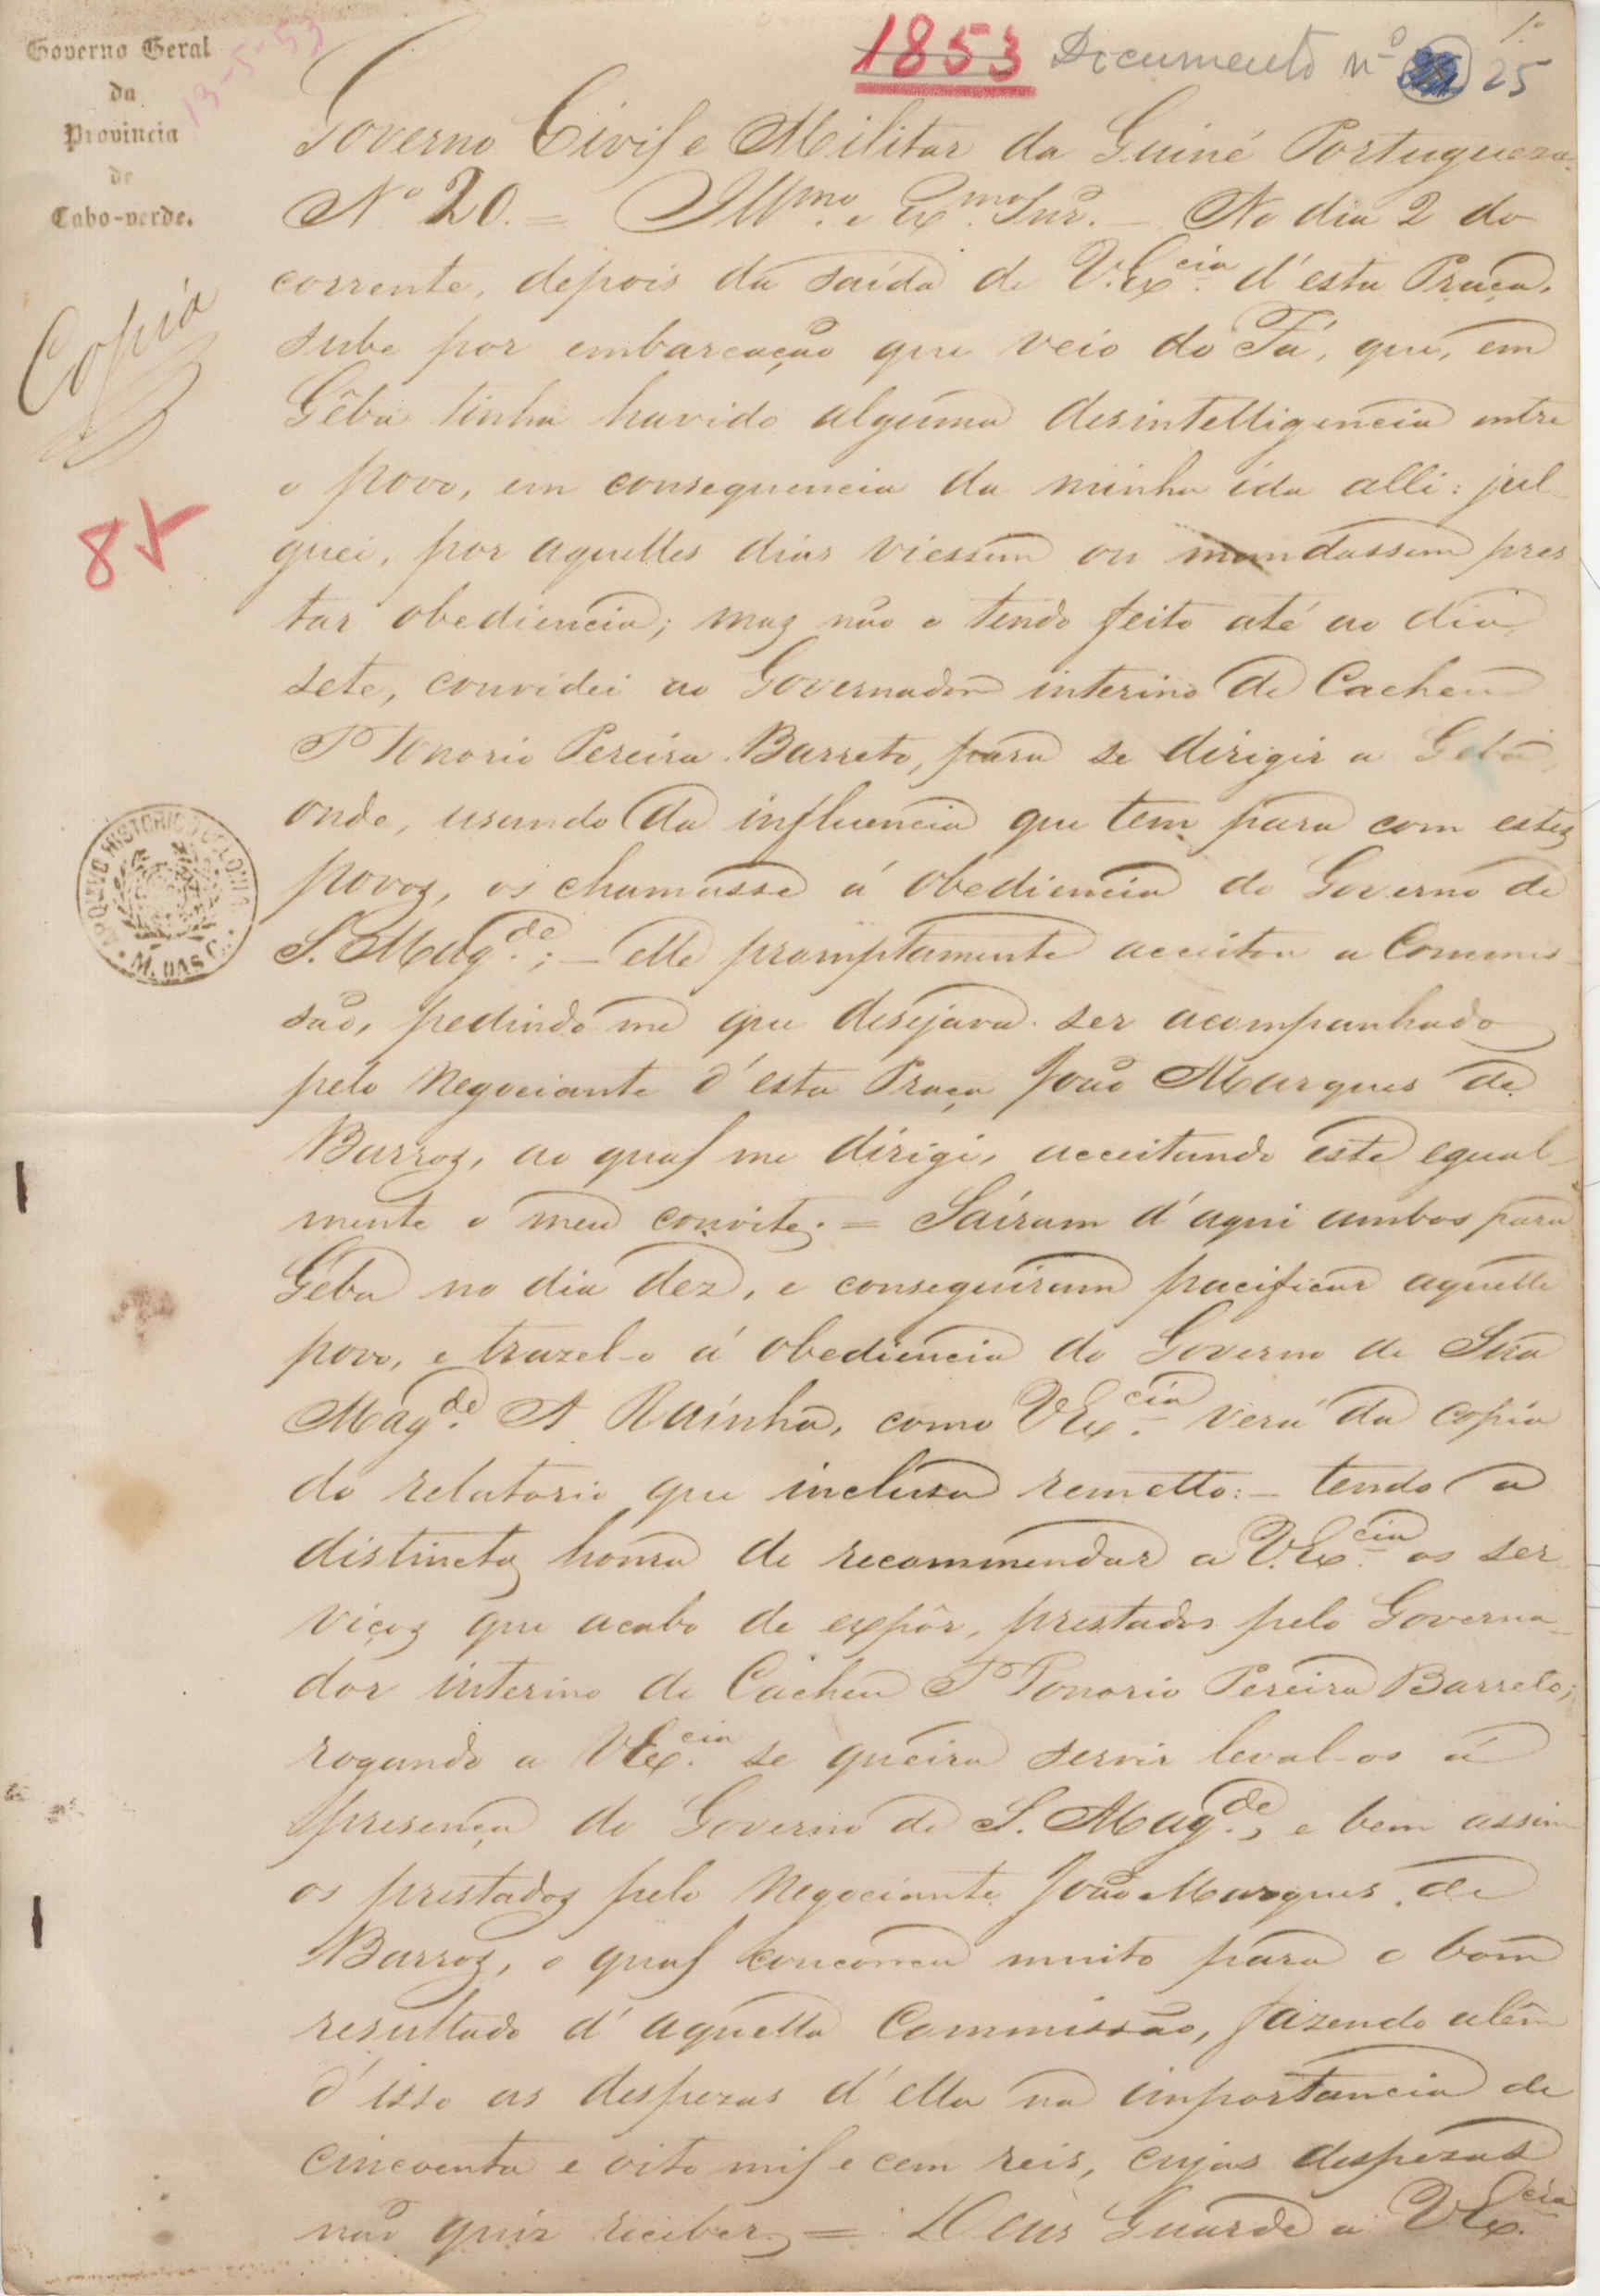 Governo Geral
da
Provincia
de
Cabo-verde.
13-5-53
1853 Documento nº 25
1º
Copia
85
ARQUIVO HISTORICO COLONIAL
M. DAS C.
Governo Civil e Militar da Guiné Portugueza
Nº 20. = Illmo. e Exmo. Snr. — No dia 2 do
corrente, depois da saída de V.Excia. d'esta Praça,
sube por embarcação que veio do Fá, que, em
Gêba tinha havido alguma desintelligencia entre
o povo, em consequencia da minha ida alli: jul-
guei, por aquelles dias viessem ou mandassem pres
tar obediencia; maz não o tendo feito até ao dia
sete, convidei ao Governador interino de Cacheu
Honorio Pereira Barreto, para se dirigir a Geba,
onde, usando da influencia que tem para com estez
povoz, os chamasse á obediencia do Governo de
S. Magde.; — elle promptamente acceitou a Commis-
são, pedindo me que desejava ser acompanhado
pelo Negociante d'esta Praça João Marques de
Barroz, ao qual me dirigi, acceitando este egual-
mente o meu convite. = Saíram d'aqui ambos para
Geba no dia dez, e conseguiram pacificar aquelle
povo, e trazel-o á obediencia do Governo de Sua
Magde. A Raínha, como VExcia. verá da copia
do relatorio que incluza remetto: — tendo a
distincta honra de recommendar a V.Excia. os ser
viçoz que acabo de expôr, prestados pelo Governa-
dor interino de Cacheu Honorio Pereira Barreto;
rogando a VExcia. se queira servir leval-os á
presença do Governo de S. Magde., e bem assim
os prestadoz pelo Negociante João Marques de
Barroz, o qual concorreu muito para o bom
resultado d'aquella Commissão, fazendo alêm
d'isso as despezas d'ella na importancia de
cincoenta e oito mil e cem reis, cujas despezas
não quiz receber = Deus Guarde a VExcia.